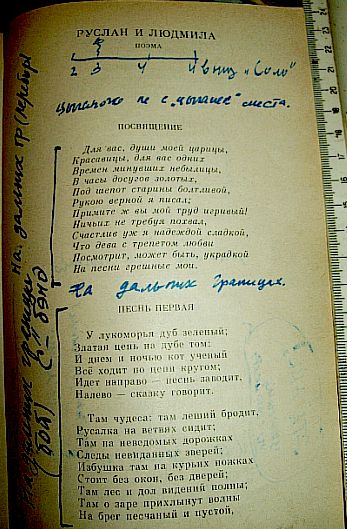 РУСЛАН И ЛЮДМИЛА
ПОЭМА
2 3 4 4 вниз „Соло"
не с места.
ПОСВЯЩЕНИЕ
Для вас, души моей царицы,
Красавицы, для вас одних
Времен минувших небылицы,
В часы досугов золотых,
Под шепот старины болтливой,
Рукою верной я писал;
Примите ж вы мой труд игривый!
Ничьих не требуя похвал,
Счастлив уж я надеждой сладкой,
Что дева с трепетом любви
Посмотрит, может быть, украдкой
На песни грешные мои.
На дальных границах.
ПЕСНЬ ПЕРВАЯ
У лукоморья дуб зеленый;
Златая цепь на дубе том:
И днем и ночью кот ученый
Всё ходит по цепи кругом;
Идет направо — песнь заводит,
Налево — сказку говорит.
Там чудеса: там леший бродит,
Русалка на ветвях сидит;
Там на неведомых дорожках
Следы невиданных зверей;
Избушка там на курьих ножках
Стоит без окон, без дверей;
Там лес и дол видений полны;
Там о заре прихлынут волны
На брег песчаный и пустой,
на дальных гр.
(бой)
17 18 19 20 21 22 23 24